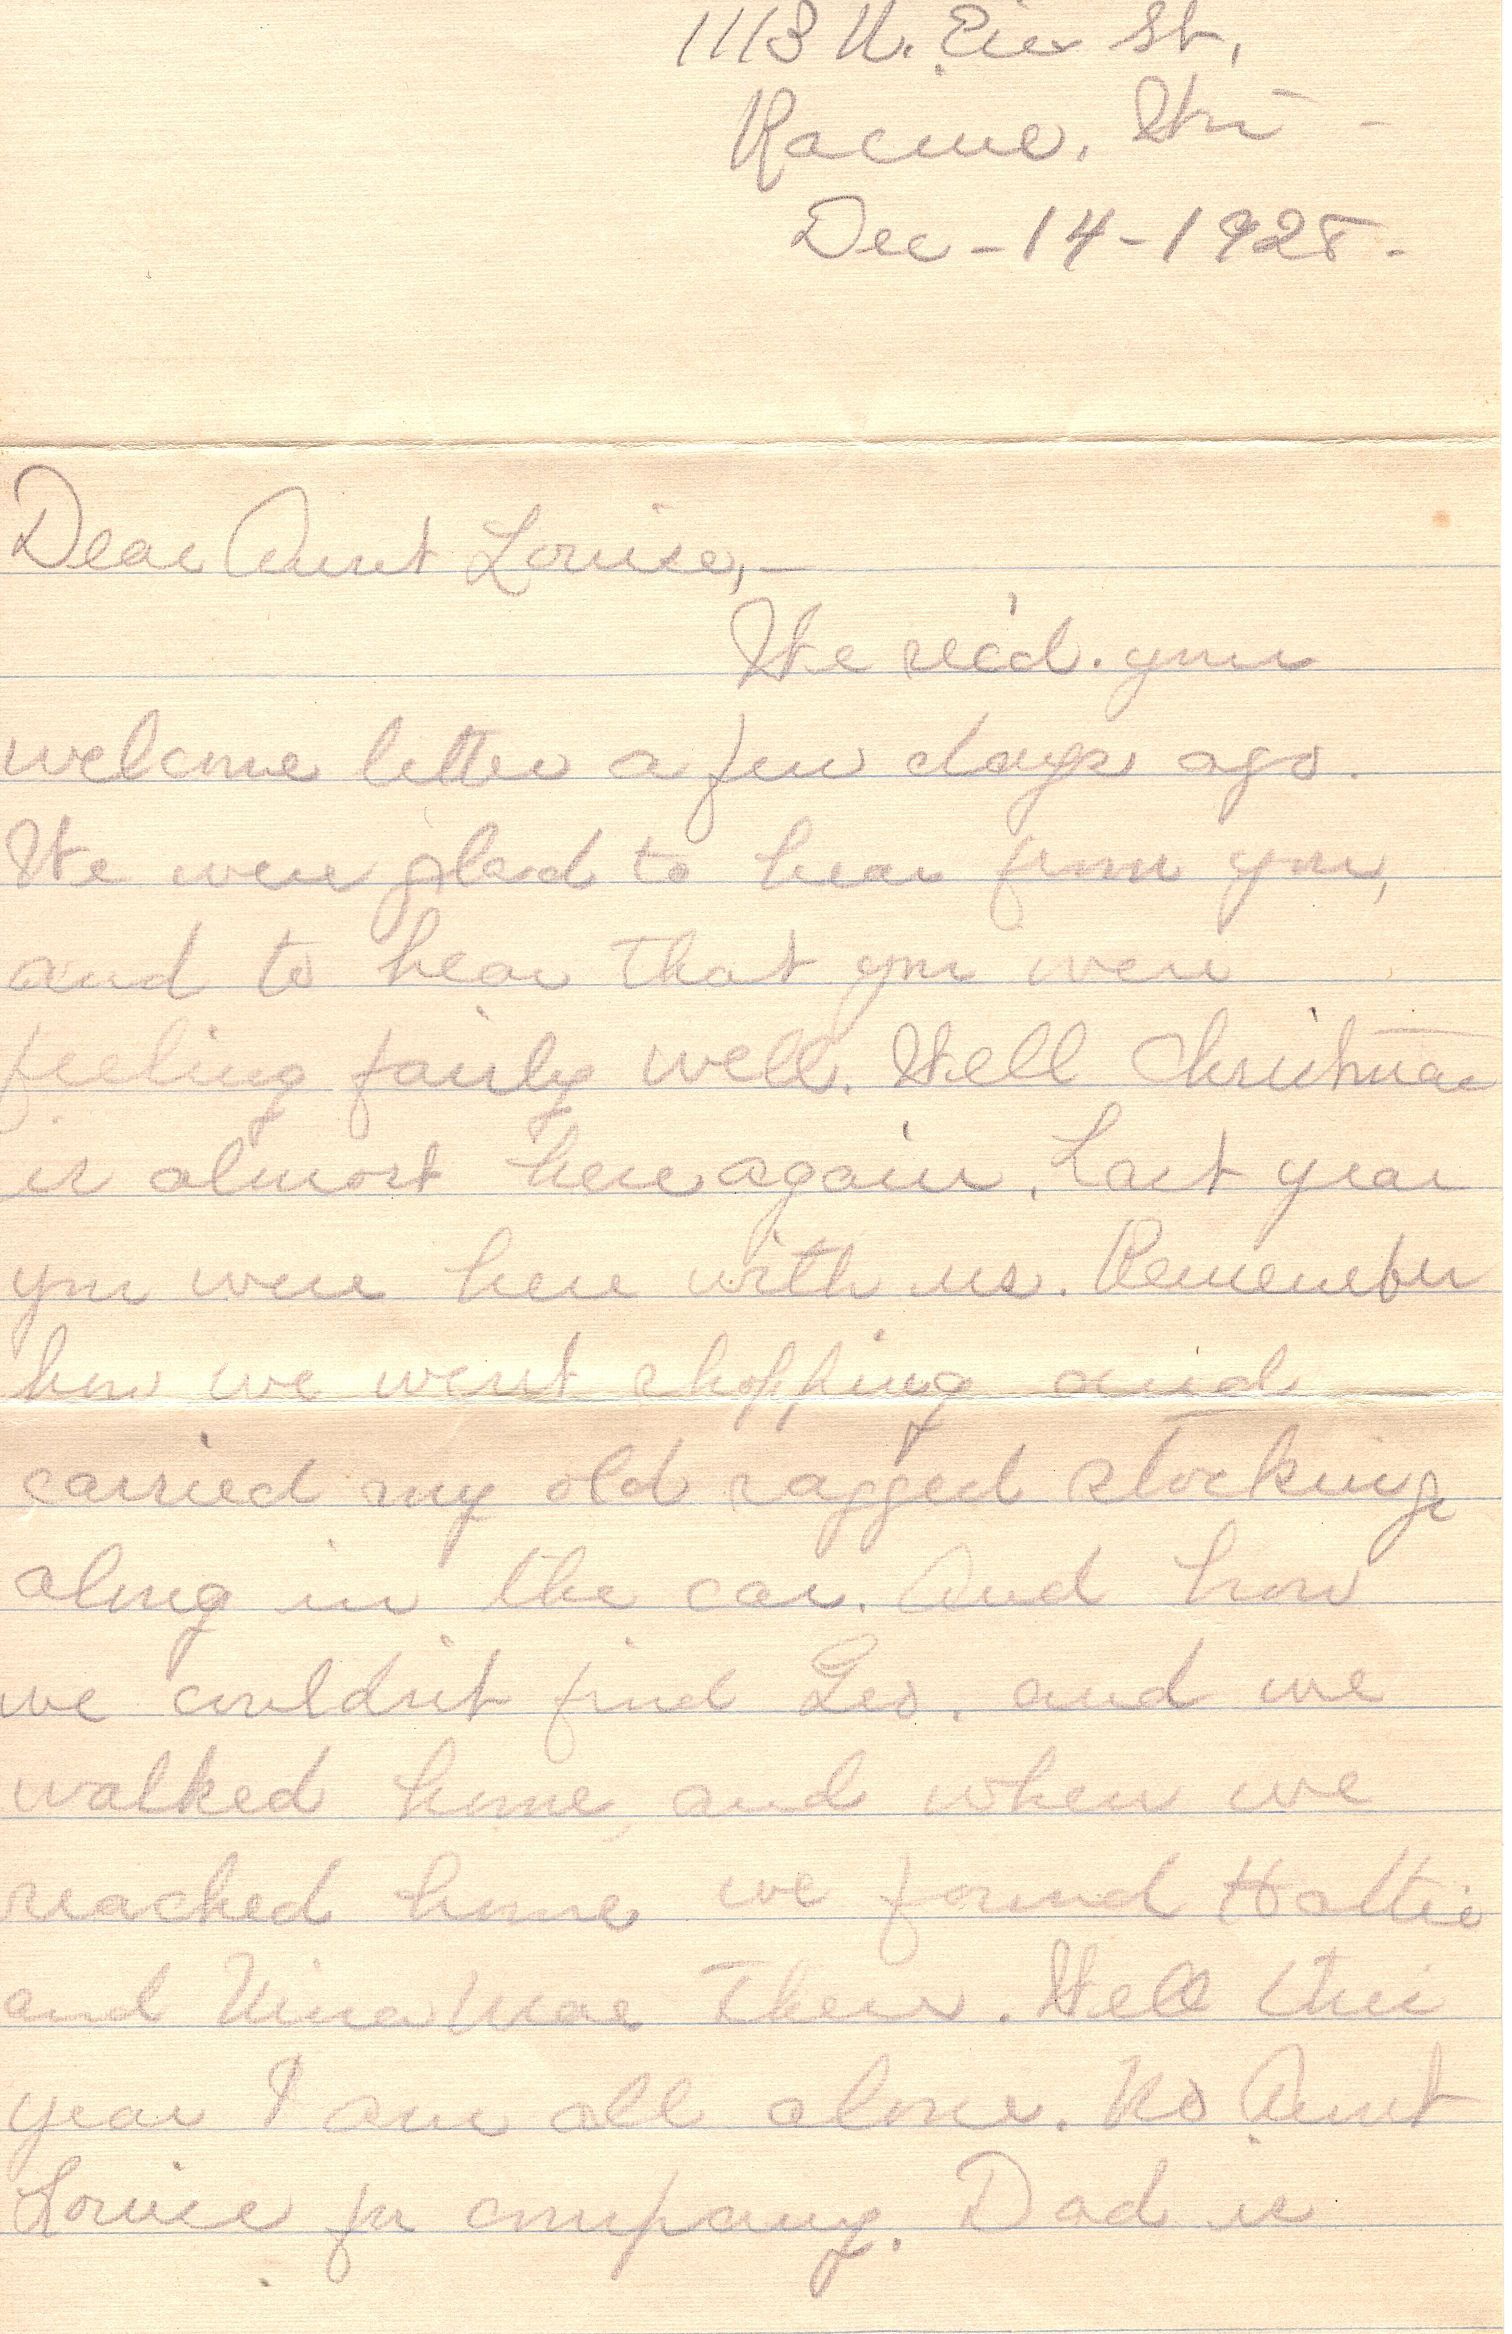 1113 N. Erie St,
Racine, Wis -
Dec - 14 - 1925.
Dear Aunt Louise, -
We rec'd. your
welcome letter a few days ago.
We were glad to hear from you,
and to hear that you were
feeling fairly well. Well Christmas
is almost here again. Last year
you were here with us. Remember
how we went shopping and
carried my old ragged stockings
along in the car. And how
we couldn't find Leo. and we
walked home, and when we
reached home we found Hattie
and Nina Mae there. Well this
year I am all alone. No Aunt
Louise for company. Dad is